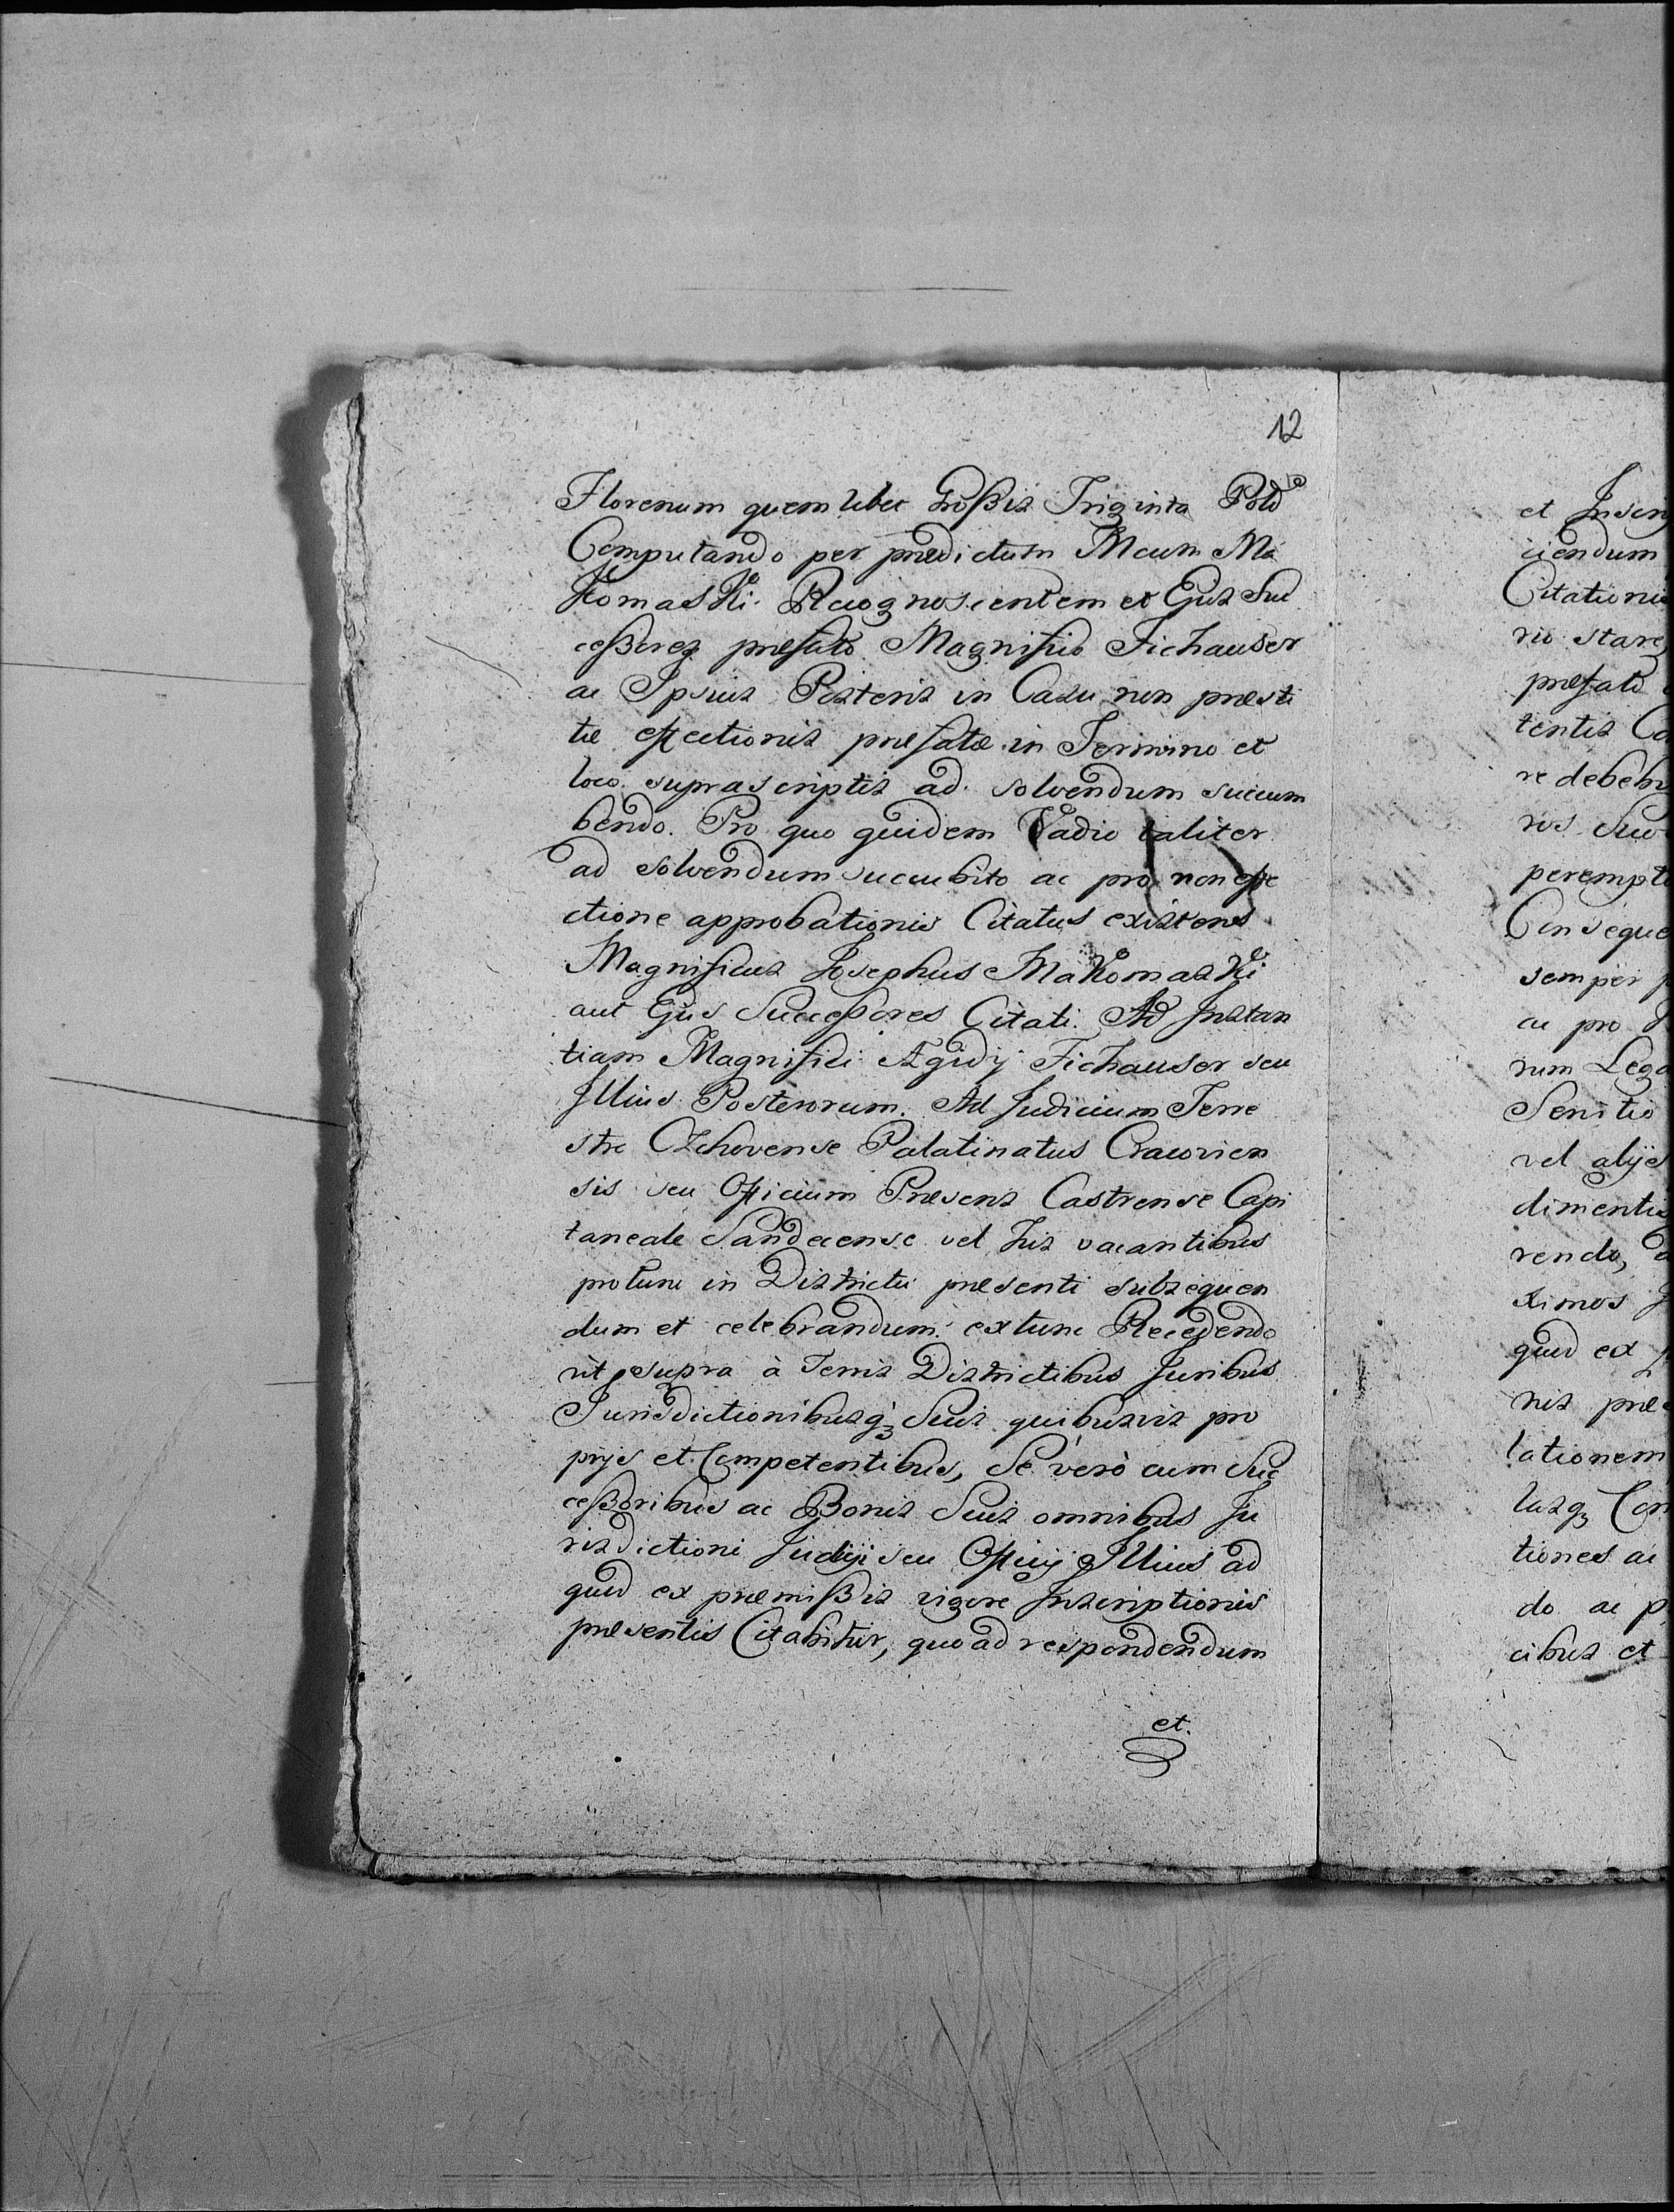 12
Florenum quemlibet Großis Triginta Pold
Computando per prædictum Mcum Ma
Komaski Recognoscentem et Ejus Suc
ceßores præfato Magnifico Fichauser
ac Ipsius Posteris in Casu non præsti
tæ effectionis præfatæ in Termino et
loco suprascriptis ad solvendum succum
bendo. Pro quo quidem Vadio taliter
ad solvendum succubito ac pro non effe
ctione approbationis Citatus existens
Magnificus Josephus MaKomasKi
aut Ejus Succeßores Citati Ad Instan
tiam Magnifici Ægidij Fichauser seu
Illius Posterorum. Ad Judicium Terre
stre Czchovense Palatinatus Cracovien
sis seu Officium Præsens Castrense Capi
taneale Sandecense vel his vacantibus
protunc in Districtu præsenti subsequen
dum et celebrandum extunc Recedendo
ùt supra à Terris Districtibus Juribus
Jurisdictionibusq; Suis quibusvis pro
prijs et Competentibus, Se verò cum Suc
ceßoribus ac Bonis Suis omnibus Ju
risdictioni Judicij seu Officij Illius ad
quod ex præmißis vigore Inscriptionis
præsentis Citabitur, quo ad respondendum
et.
et Inscri
ciendum
Citationis
rio stare
præfato
tentis Ca
re debebu
ros Suo
perempto
Conseque
semper p
ac pro
rum Lega
Servitio
vel alijs
dimentis
rendo, a
ximos J
quod ex p
nis præ
lationem
lusq; Con
tiones ac
do ac p
cibus et